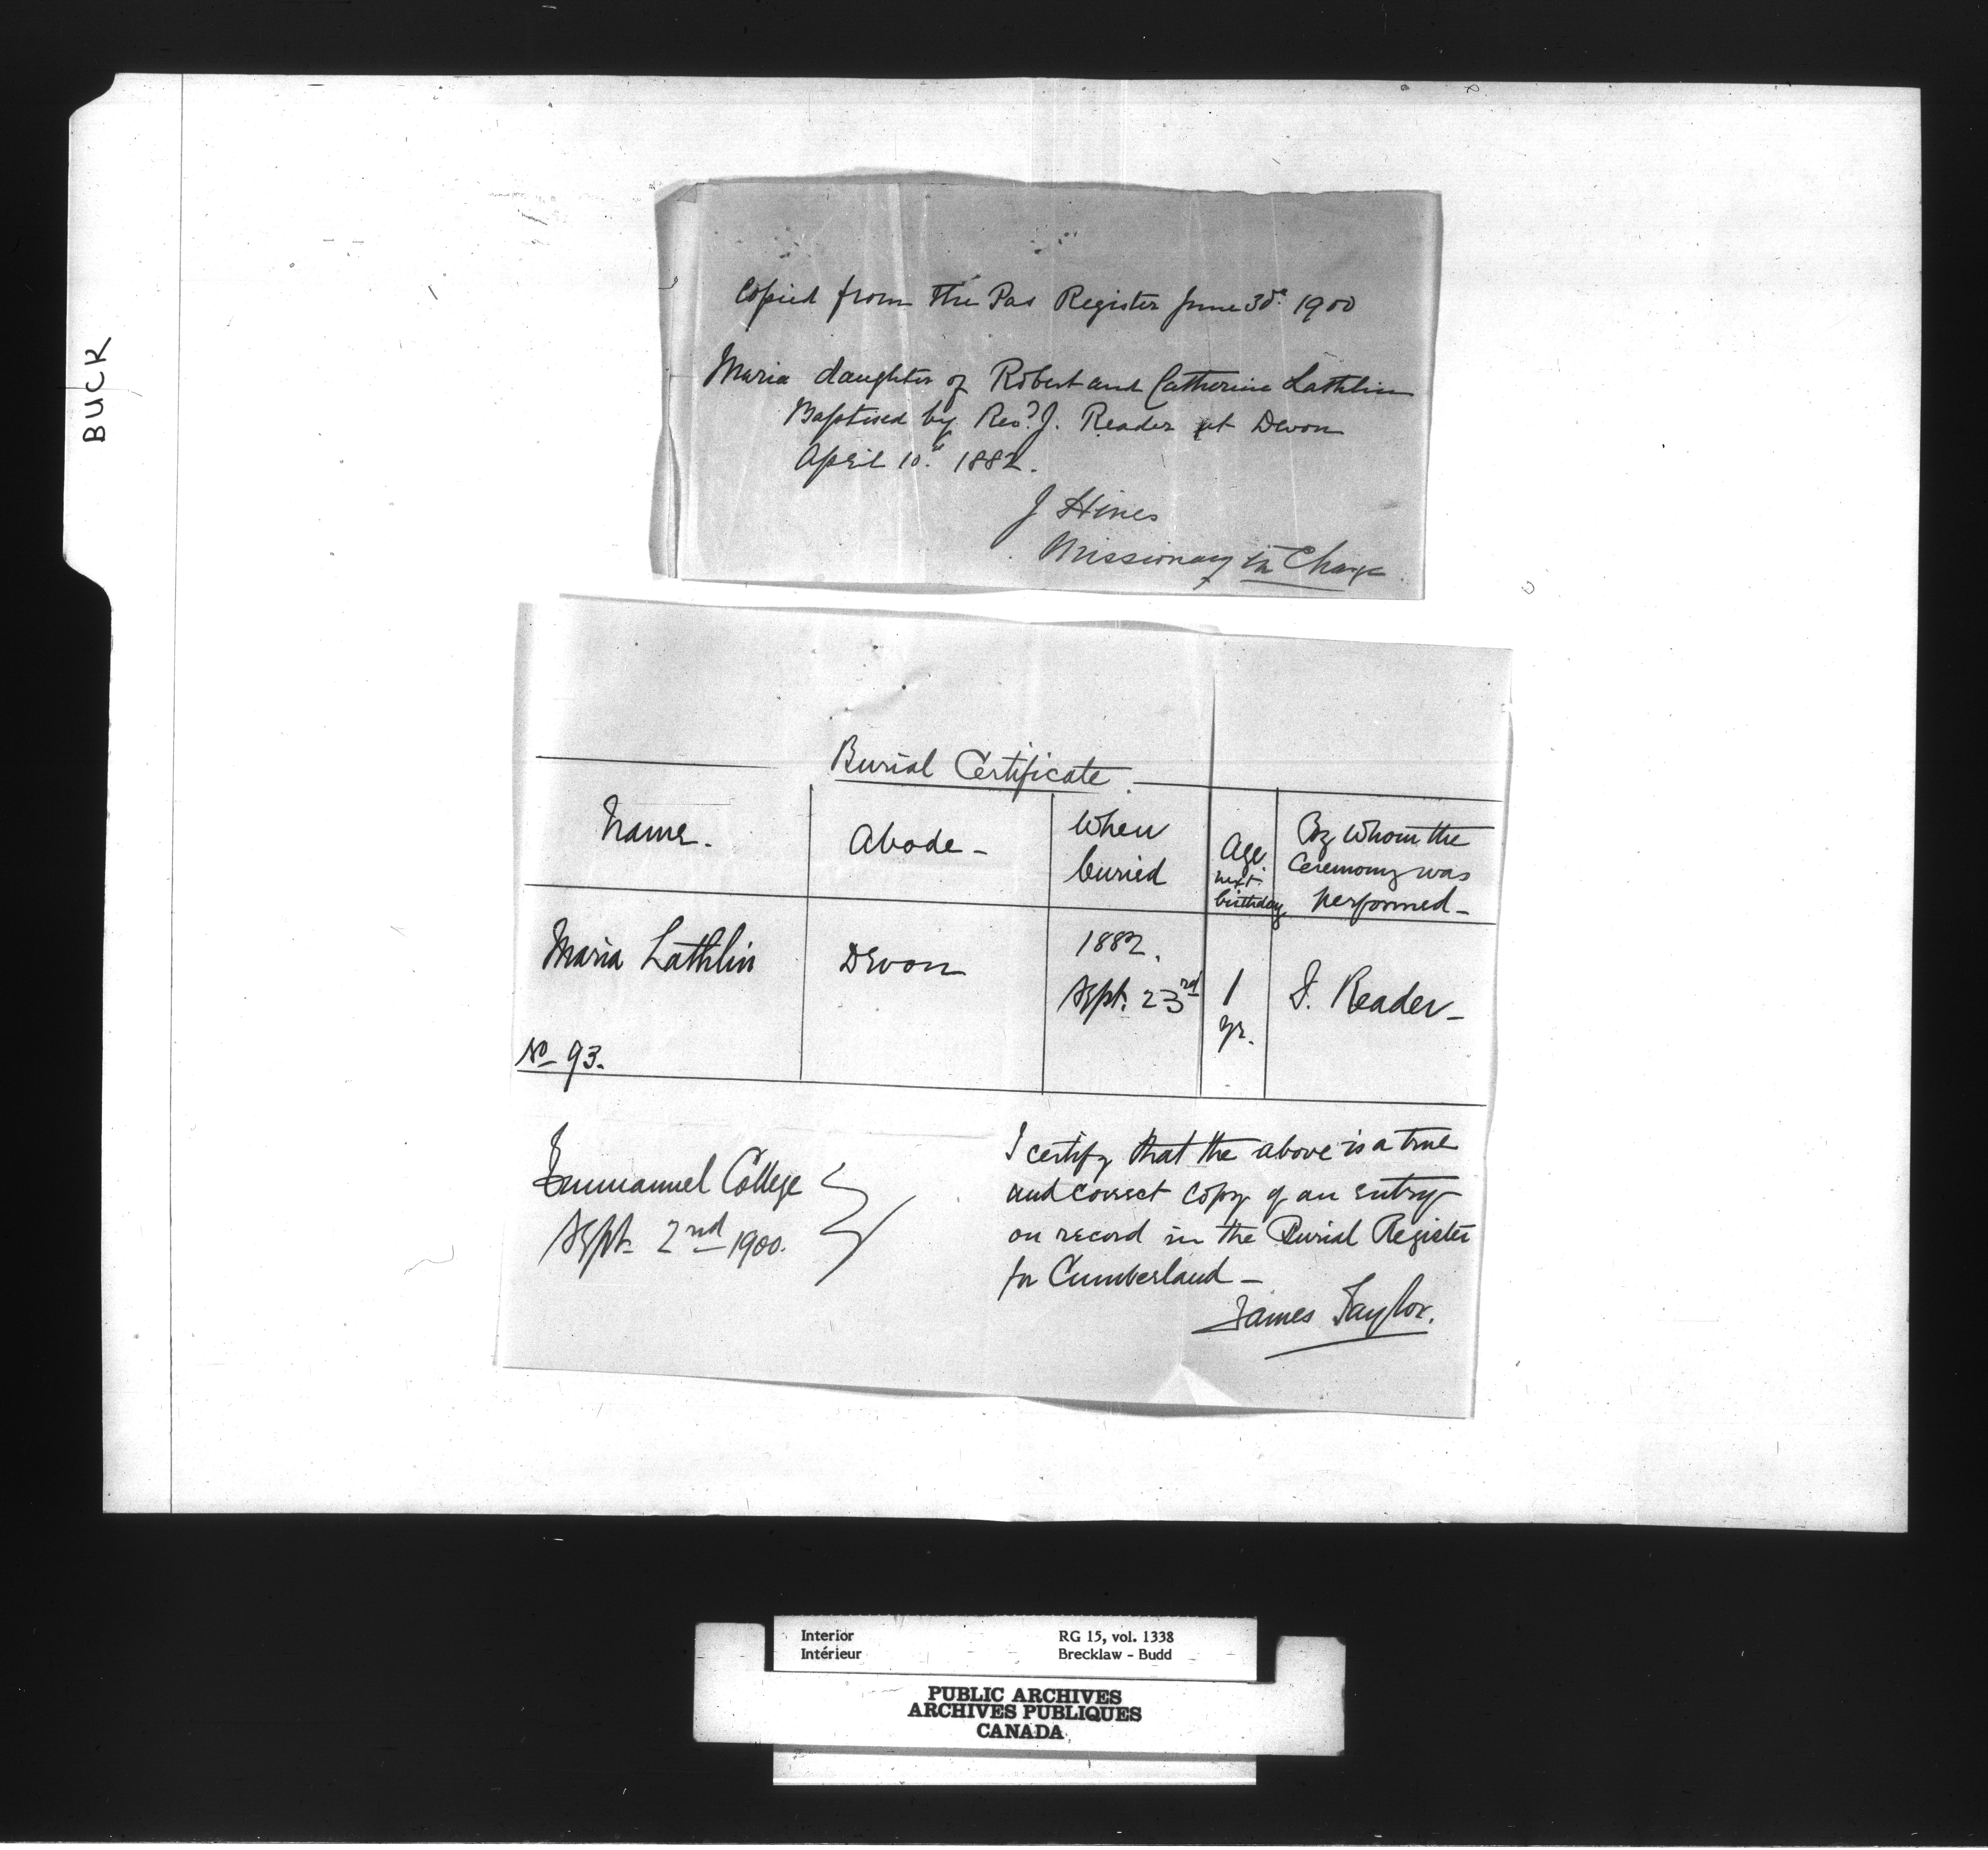 BUCK
Copied from The Pas Register June 30th 1900
Maria daughter of Robert and Catherine Lathlin
Baptised by Revd J. Reader at Devon
April 10th 1882.
J Hines
Missionary in Charge.
Burial Certificate.
Name.
Abode -
When
buried
Age
next
birthday
By whom the
Ceremony was
performed -
Maria Lathlin
Devon
1882.
Sept. 23rd
1
yr.
J. Reader -
No 93.
Emmanuel College
Sept. 2nd 1900.
I certify that the above is a true
and correct copy of an entry
on record in the Burial Register
for Cumberland -
James Taylor.
Interior
Intérieur
RG 15, vol. 1338
Brecklaw - Budd
PUBLIC ARCHIVES
ARCHIVES PUBLIQUES
CANADA